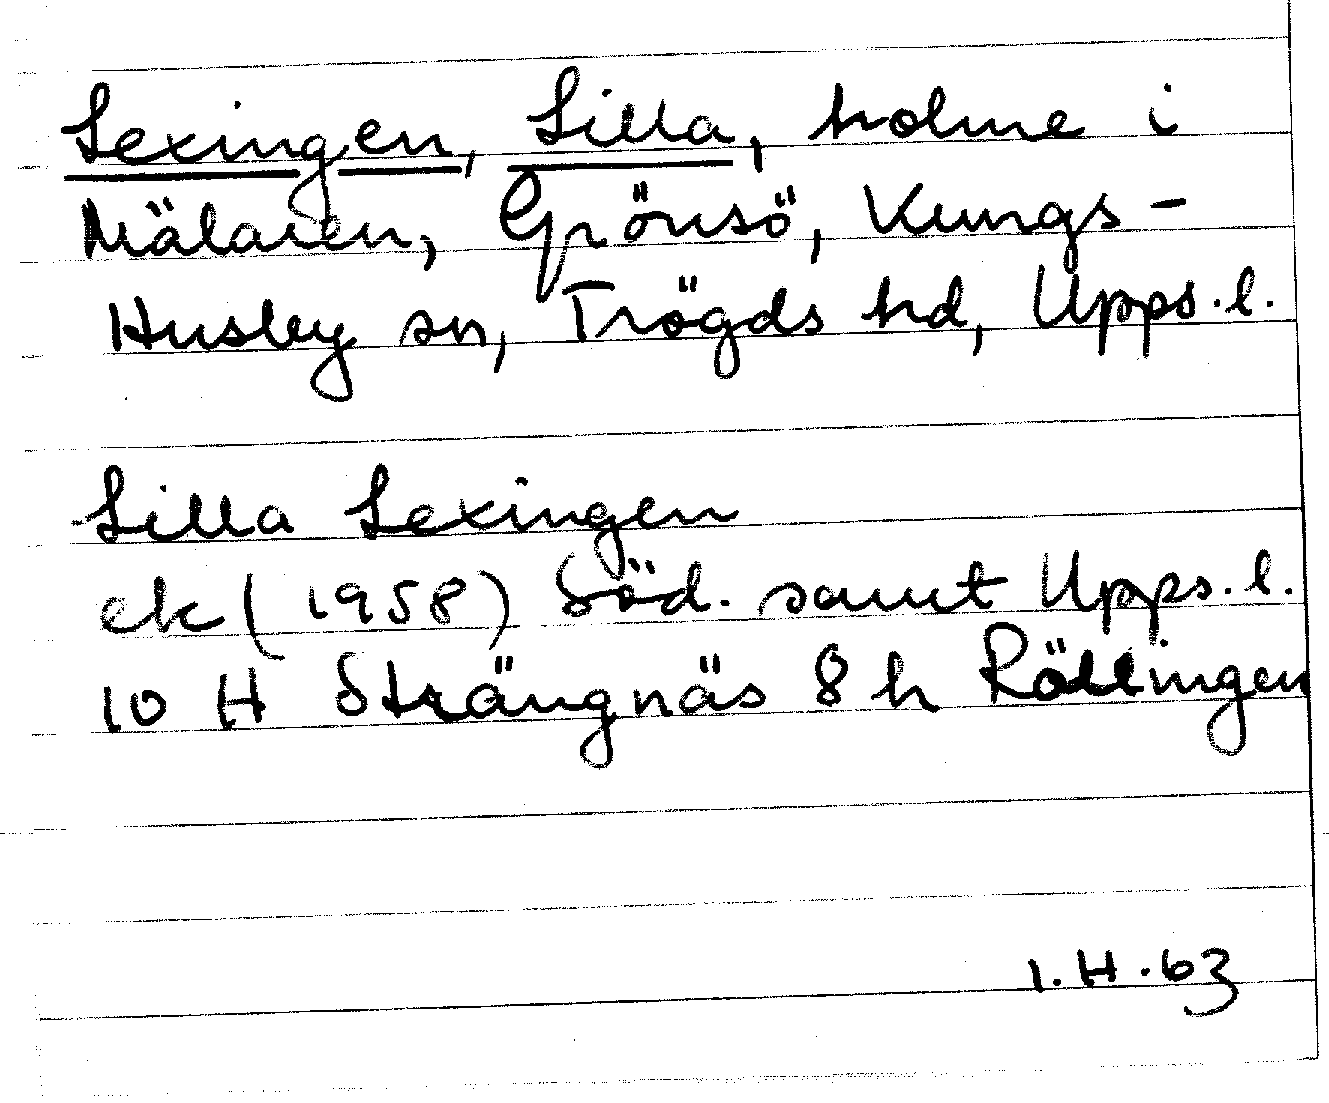 Lexingen, Lilla, holme i
Mälaren, Grönsö, Kungs-
Husby sn, Trögds hd, Upps.l.
Lilla Lexingen
ek (1958) Söd. samt Upps.l.
10 H Strängnäs 8 h Rällingen
I.H.63